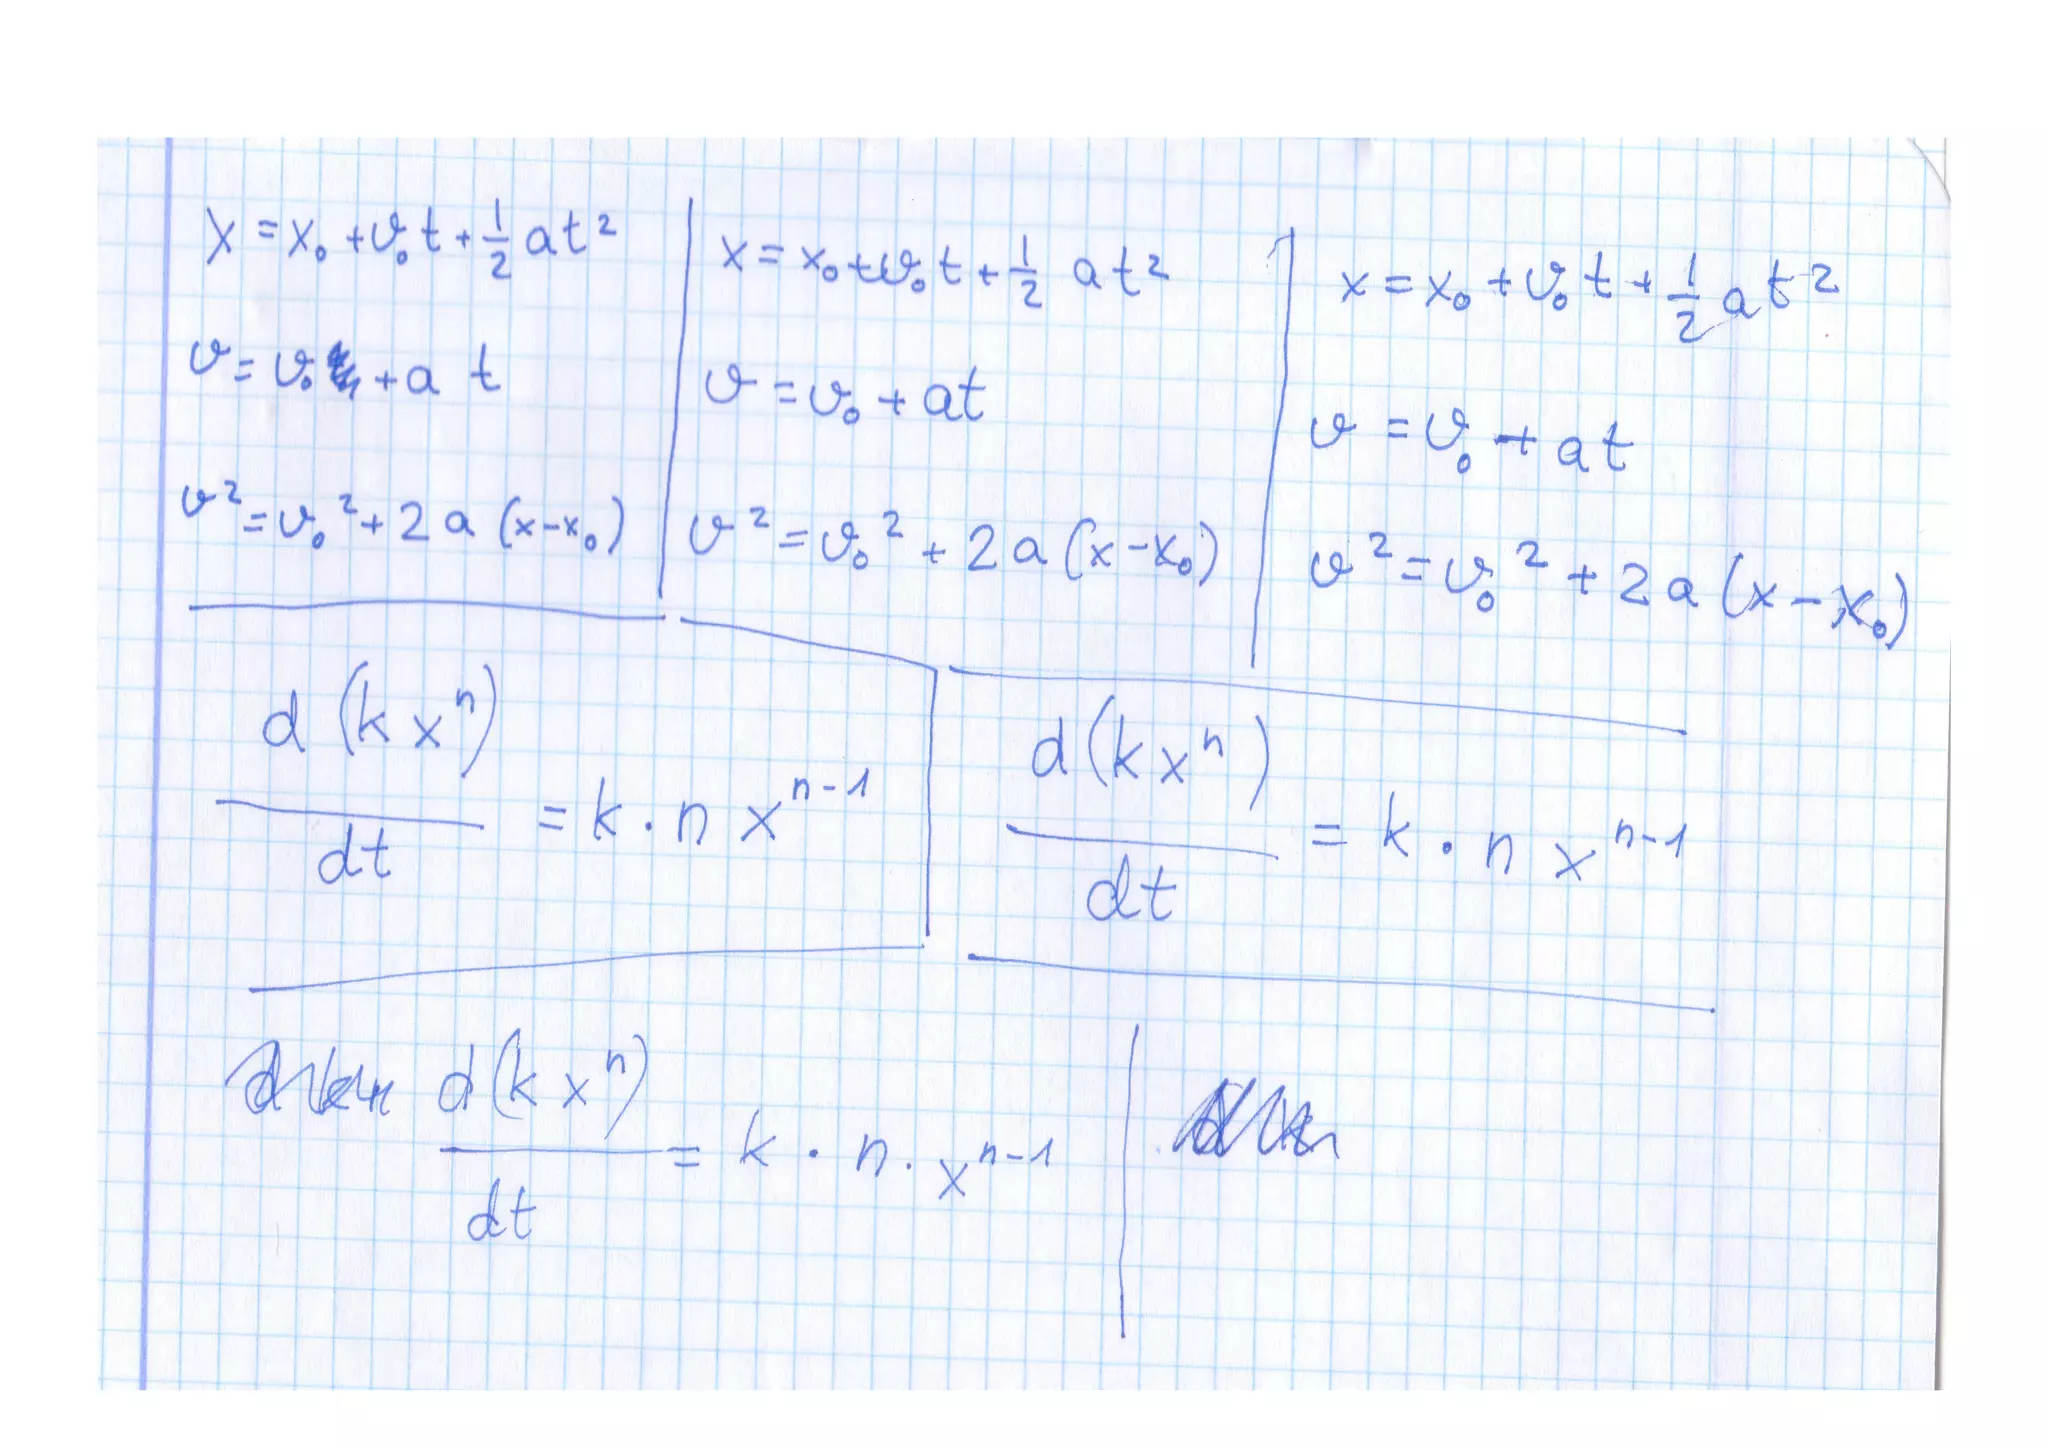 x = x₀ + v₀t + ½at²
v = v₀ + at
v² = v₀² + 2a(x-x₀)
x = x₀ + v₀t + ½ at²
v = v₀ + at
v² = v₀² + 2a(x-x₀)
x = x₀ + v₀t + ½at²
v = v₀ + at
v² = v₀² + 2a(x-x₀)
d(kxⁿ)
dt
= k·n xⁿ⁻¹
d(kxⁿ)
dt
= k·n xⁿ⁻¹
d(kxⁿ)
dt
= k·n·xⁿ⁻¹